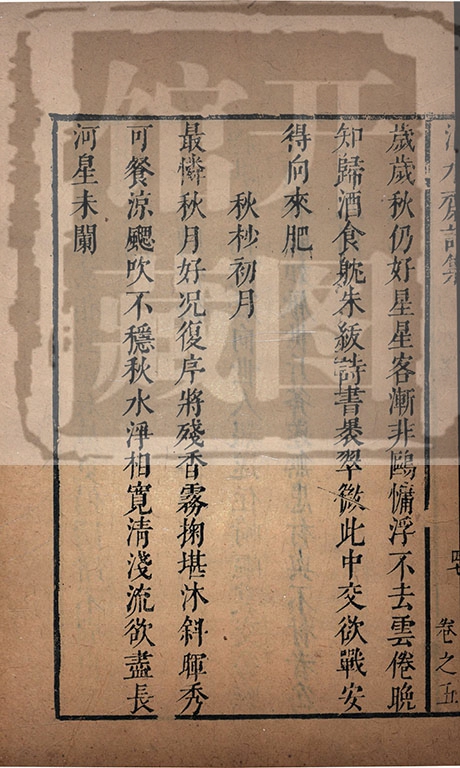 歲歲秋仍好星星客漸非鷗慵浮不去雲倦晚
知歸酒食躭朱紱詩書褁翠微此中交欲戰安
得向來肥
秋杪初月
最憐秋月好况復序將殘香霧掬堪沐斜暉秀
可餐涼飀吹不穩秋水淨相寬清淺流欲盡長
河星未闌
卷之五